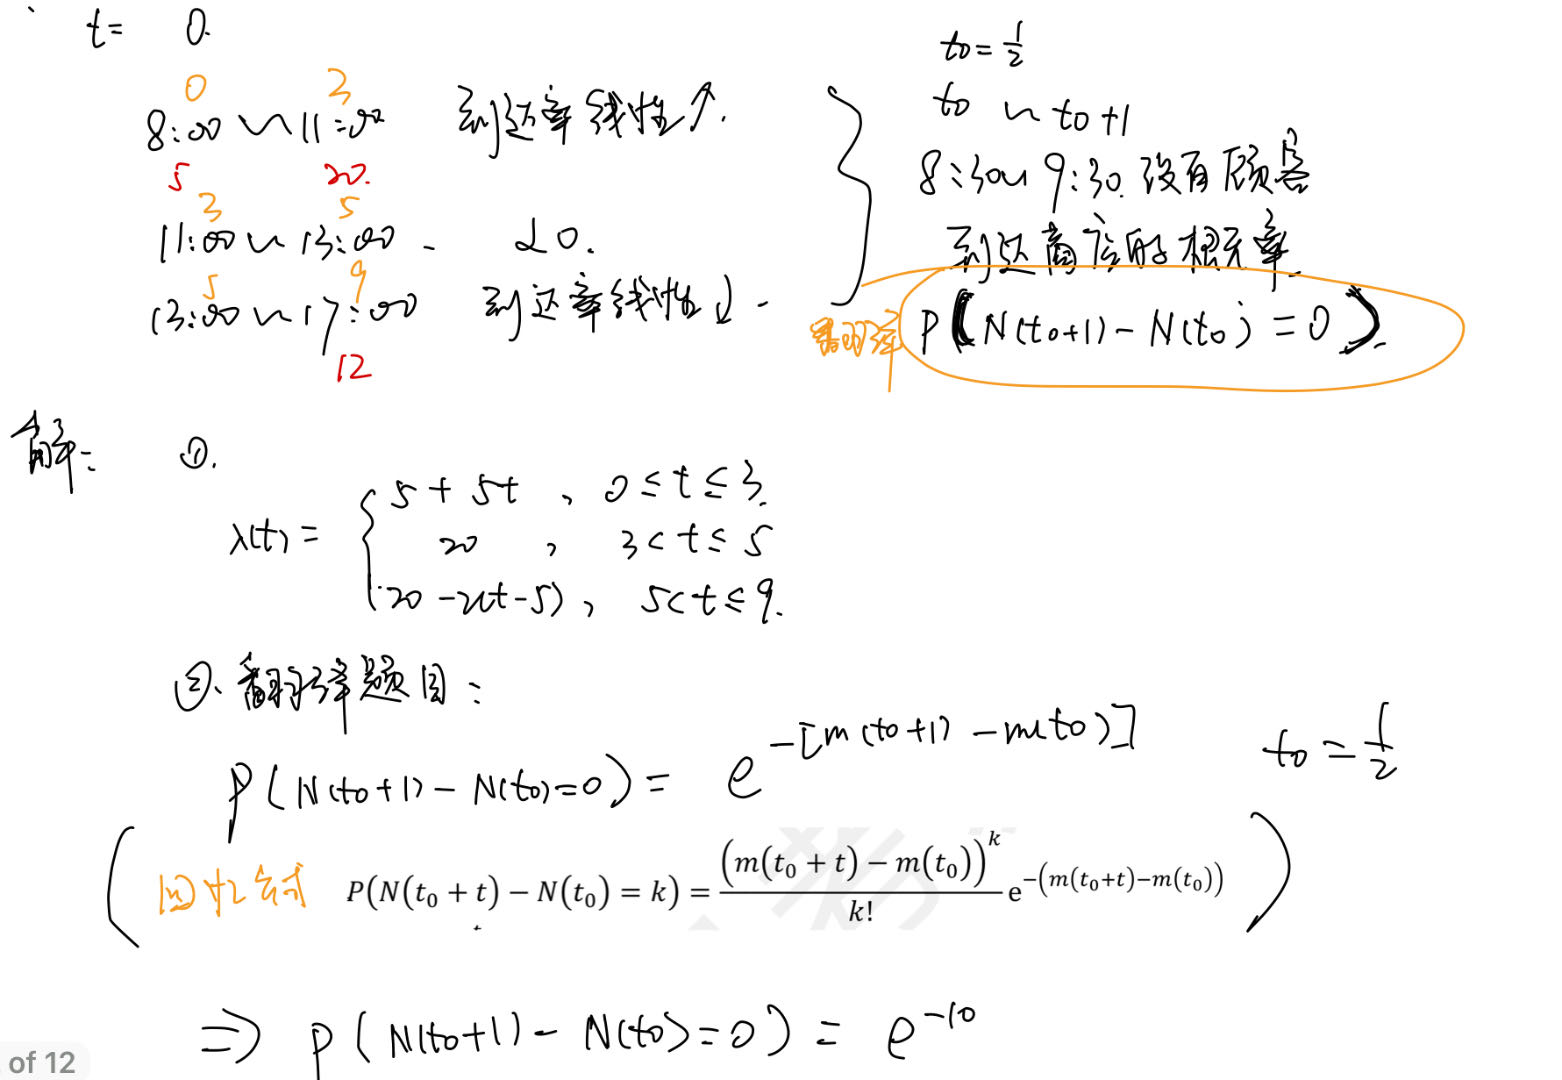 t= 0.
0 3
8:00 ~ 11:00 到达率线性↑.
5 20.
3 5
11:00 ~ 13:00 - 20.
5 9
13:00 ~ 17:00 到达率线性↓.
12
t0=1/2
t0 ~ t0+1
8:30~9:30.没有顾客
到达商店的概率.
翻译 P(N(t0+1)-N(t0)=0).
解: ①.
λ(t) = { 5+5t , 0≤t≤3.
20 , 3<t≤5
20-2(t-5), 5<t≤9.
②.翻译题目:
P(N(t0+1)-N(t0)=0)= e^{-[m(t0+1)-m(t0)]} t0=1/2
(回忆公式 P(N(t₀ + t) − N(t₀) = k) = (m(t₀ + t) − m(t₀))^k / k! e^{−(m(t₀+t)−m(t₀))})
⇒ P(N(t0+1)-N(t0)=0) = e^{-10}
of 12